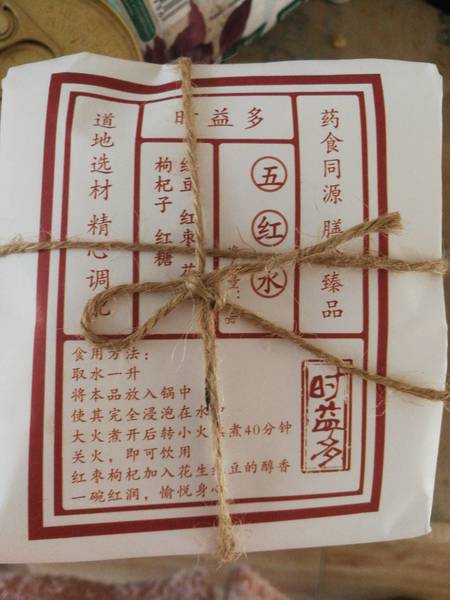 时益多
药食同源 膳 臻品
五红水
红豆 红枣 花
枸杞子 红糖
道地选材 精心调配
食用方法:
取水一升
将本品放入锅中
使其完全浸泡在水
大火煮开后转小火 煮40分钟
关火，即可饮用
红枣枸杞加入花生红豆的醇香
一碗红润，愉悦身心
时益多